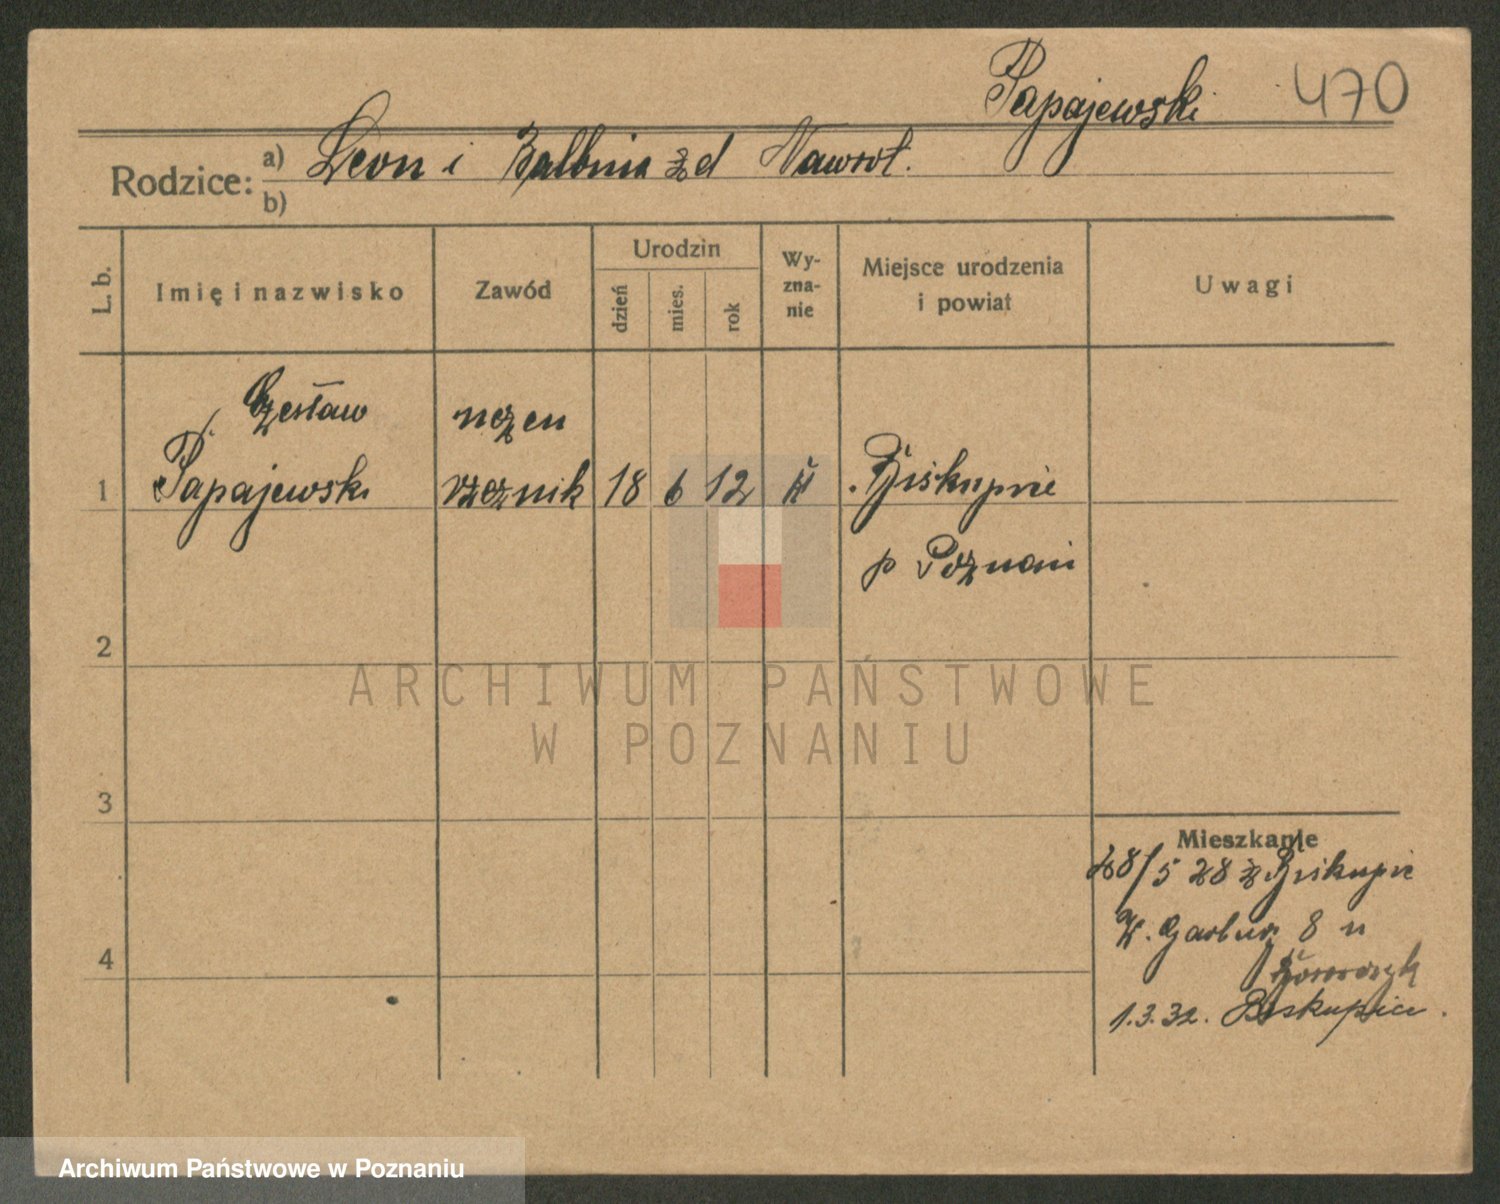 Papajewski 470
Rodzice: a) Leon i Balbina zd Nawrot.
b)
L. b. Imię i nazwisko Zawód Urodzin dzień mies. rok Wy-zna-nie Miejsce urodzenia i powiat Uwagi
Czesław uczen
1 Papajewski rzeźnik 18 6 12 k Biskupice
p Poznań
2
3
4
Mieszkanie
28/5 28 z Biskupic
W. Garbary 8 u
1.3.32. Biskupice.
ARCHIWUM PAŃSTWOWE
W POZNANIU
Archiwum Państwowe w Poznaniu